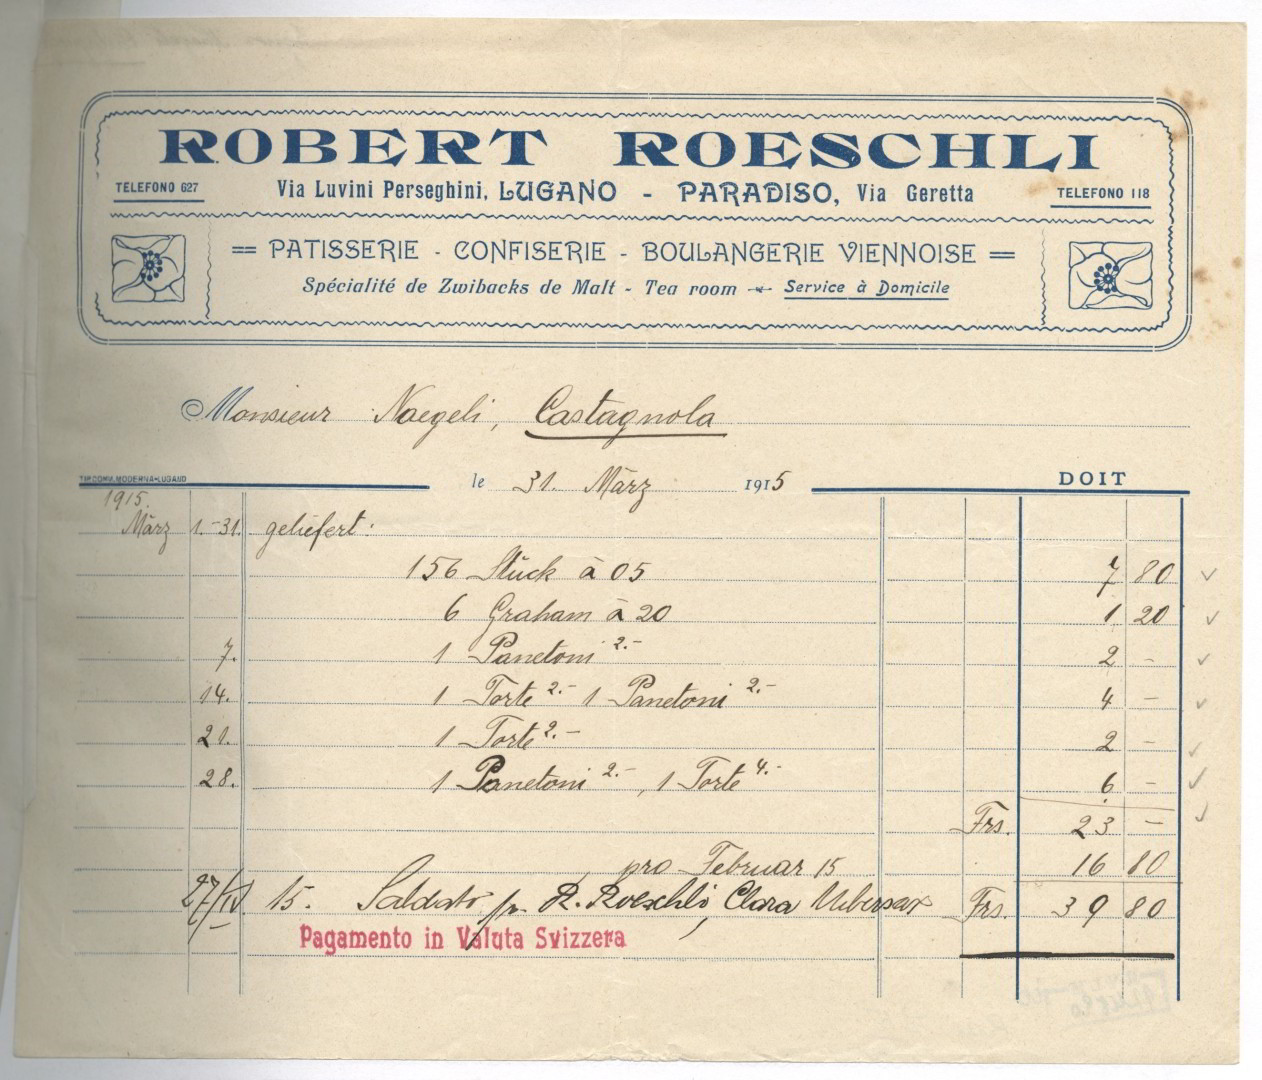 ROBERT ROESCHLI
TELEFONO 627
Via Luvini Perseghini, LUGANO - PARADISO, Via Geretta
TELEFONO 118
= PATISSERIE - CONFISERIE - BOULANGERIE VIENNOISE =
Spécialité de Zwibacks de Malt - Tea room - Service à Domicile
Monsieur Naegeli, Castagnola
TIP. COMM. MODERNA-LUGANO
le 31. März 1915
DOIT
1915.
März 1.-31. geliefert:
156 Stück à 05 7 80
6 Graham à 20 1 20
7. 1 Panetoni 2.- 2 -
14. 1 Torte 2.- 1 Panetoni 2.- 4 -
21. 1 Torte 2.- 2 -
28. 1 Panetoni 2.-, 1 Torte 4.- 6 -
Frs. 23 -
pro Februar 15 16 80
15. Saldato p. R. Roeschli, Clara Frs. 39 80
Pagamento in Valuta Svizzera